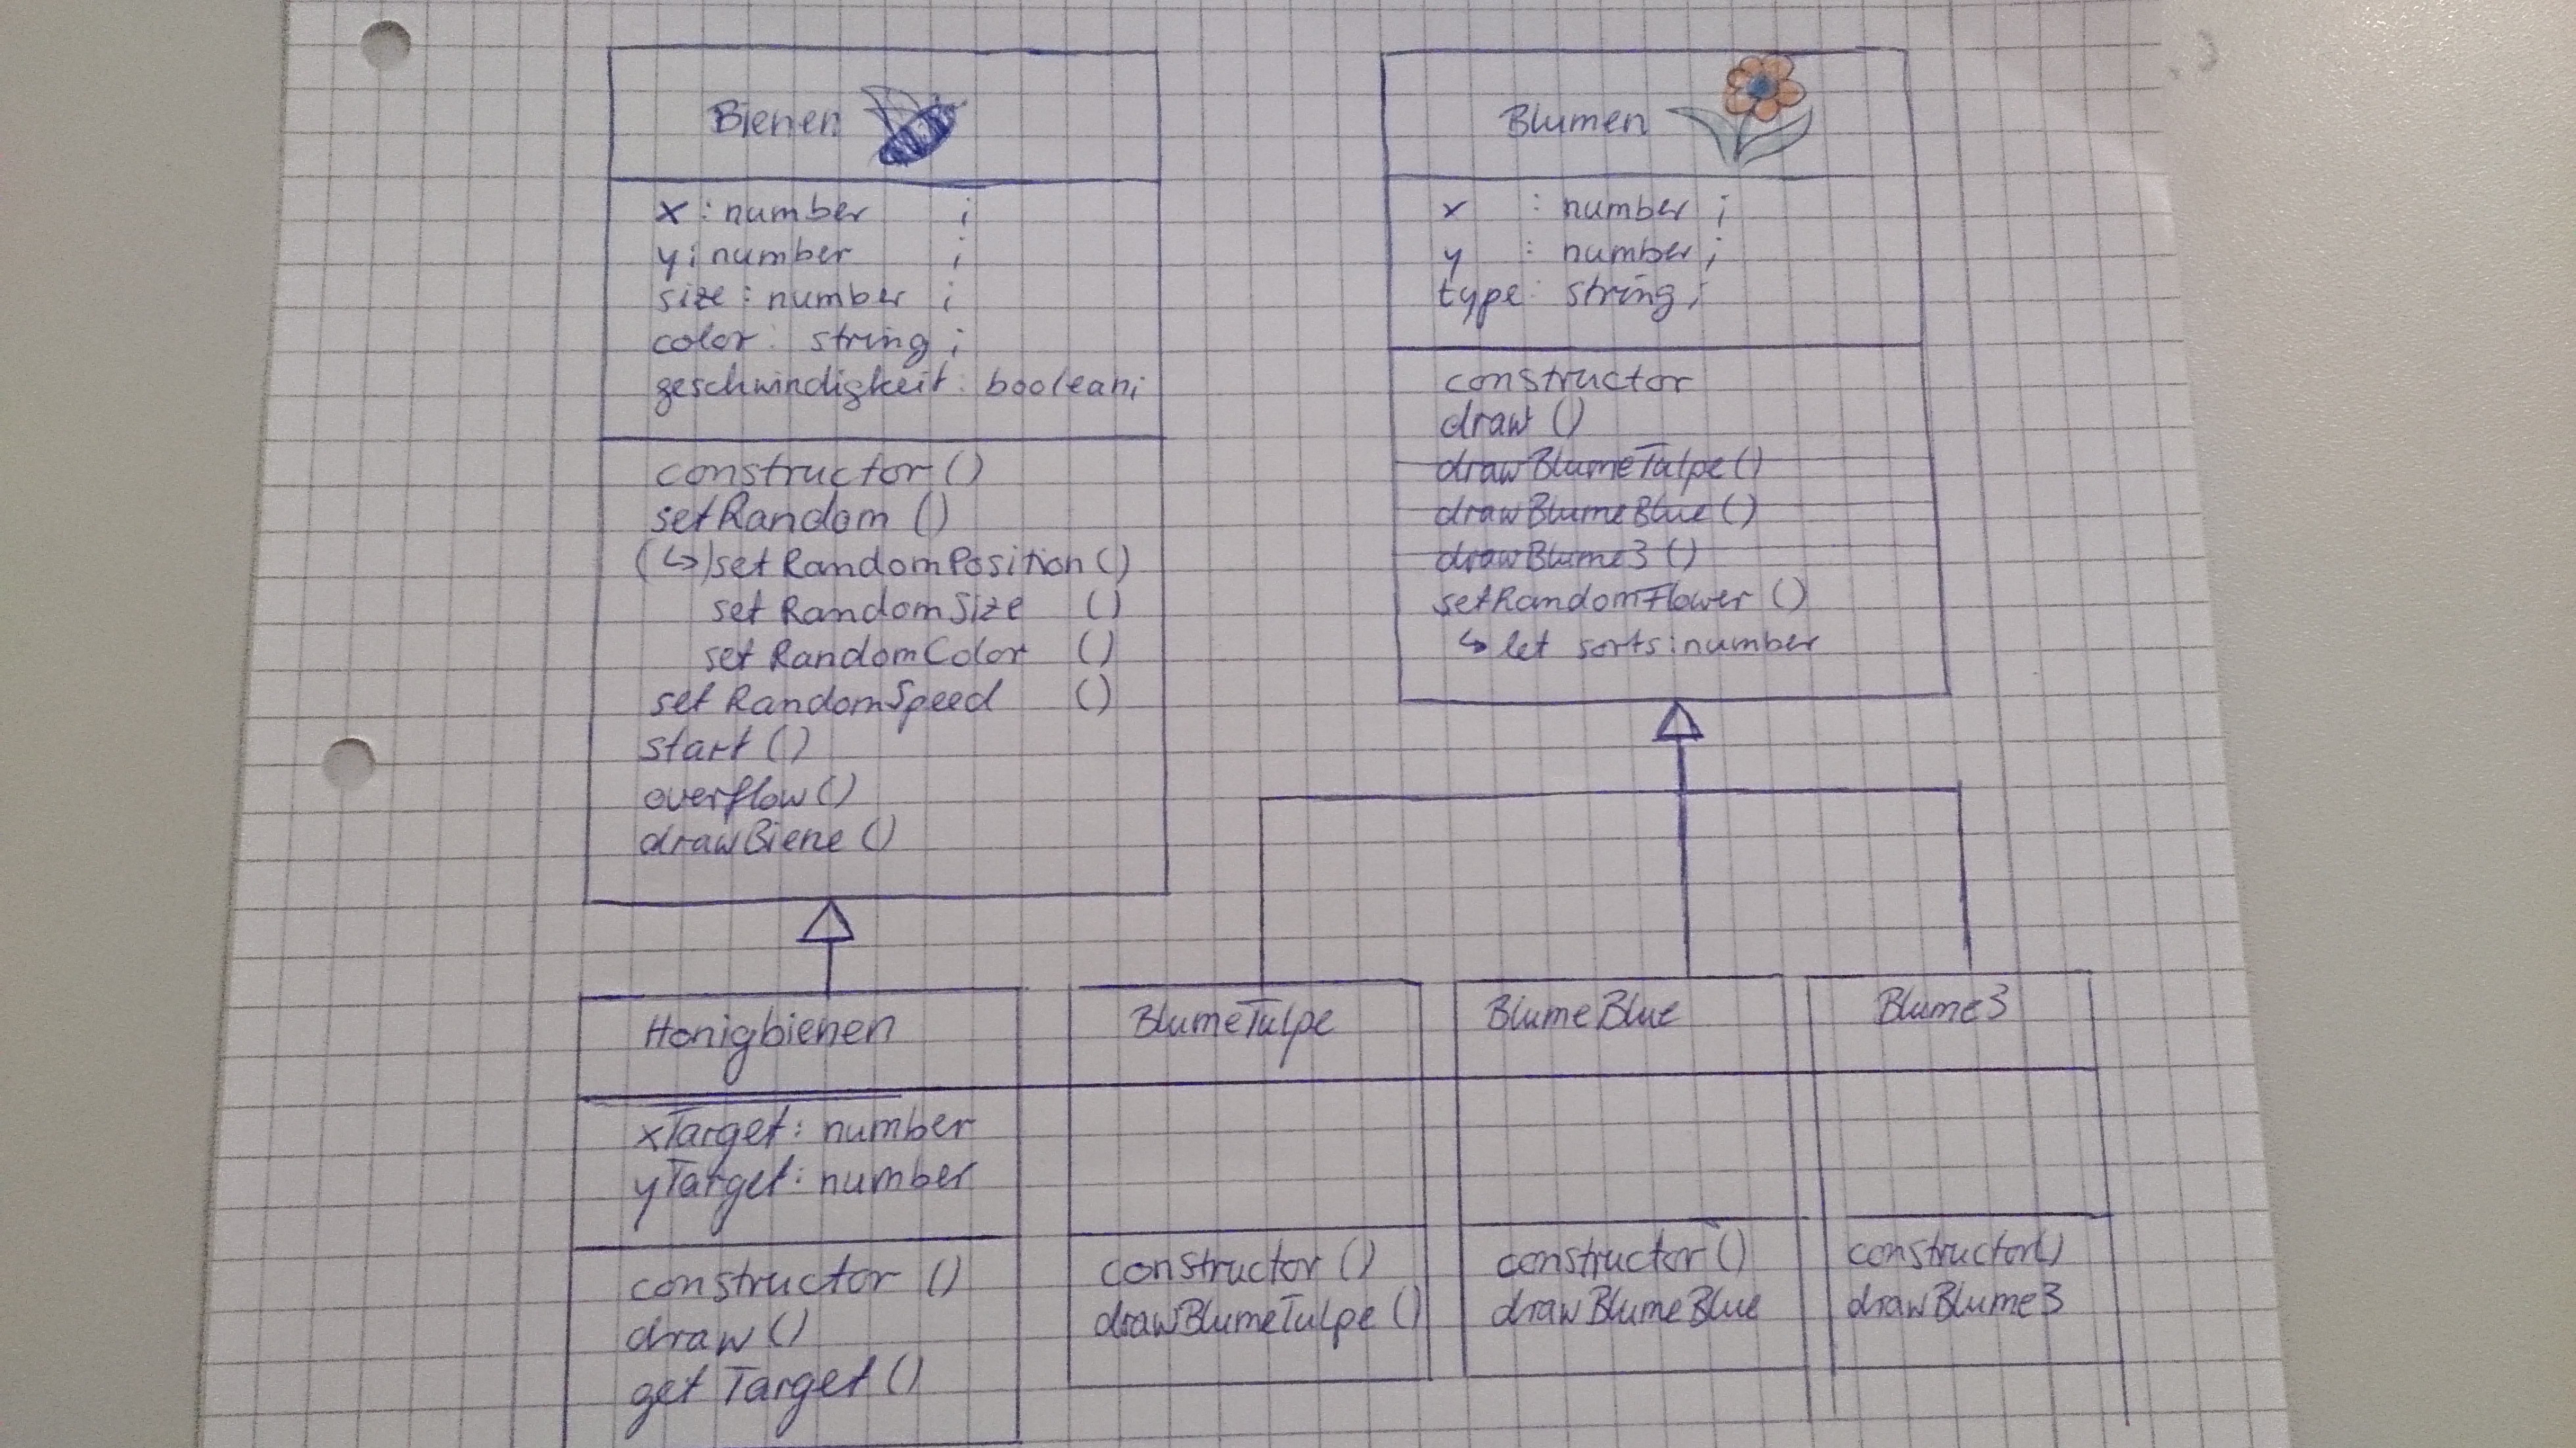 Bienen
x : number ;
y : number ;
size : number ;
color : string ;
geschwindigkeit : boolean;
constructor ()
setRandom ()
(↳) setRandomPosition ()
setRandomSize ()
setRandomColor ()
setRandomSpeed ()
start ()
overflow ()
drawBiene ()
Blumen
x : number ;
y : number ;
type : string ;
constructor
draw ()
drawBlumeTulpe ()
drawBlumeBlue ()
drawBlume3 ()
setRandomFlower ()
↳ let sorts : number
Honigbienen
xTarget : number
yTarget : number
constructor ()
draw ()
getTarget ()
BlumeTulpe
constructor ()
drawBlumeTulpe ()
BlumeBlue
constructor ()
drawBlumeBlue
Blume3
constructor()
drawBlume3